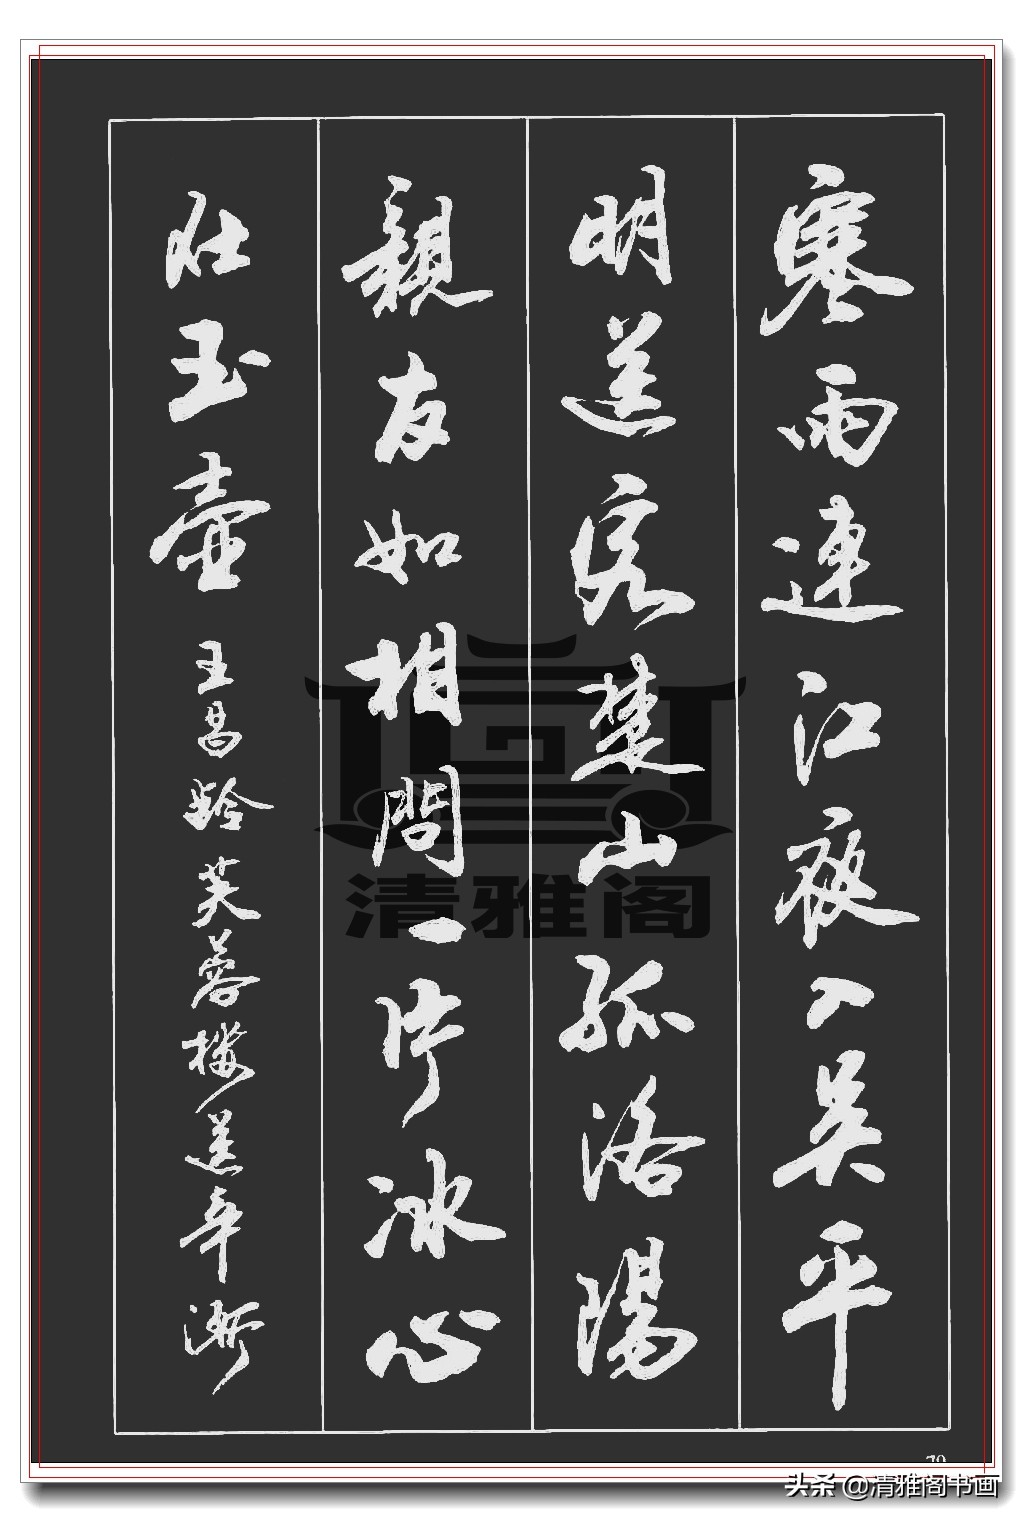 寒雨連江夜入吴平
明送客楚山孤洛陽
親友如相問一片冰心
在玉壺 王昌齡芙蓉樓送辛漸
清雅阁
79
头条 @清雅阁书画